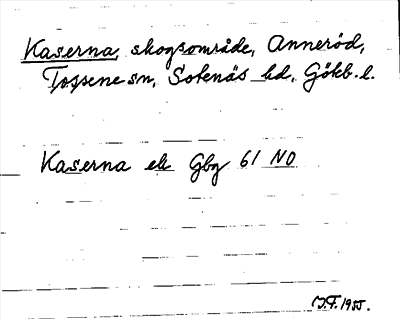 Kaserna, skogsområde, Anneröd,
Tossene sn, Sotenäs hd, Göteb. l.
Kaserna ek Gbg 61 NO
J.F. 1955.